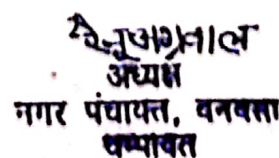 रेनू अग्रवाल
अध्यक्ष
नगर पंचायत, बनबसा
चम्पावत